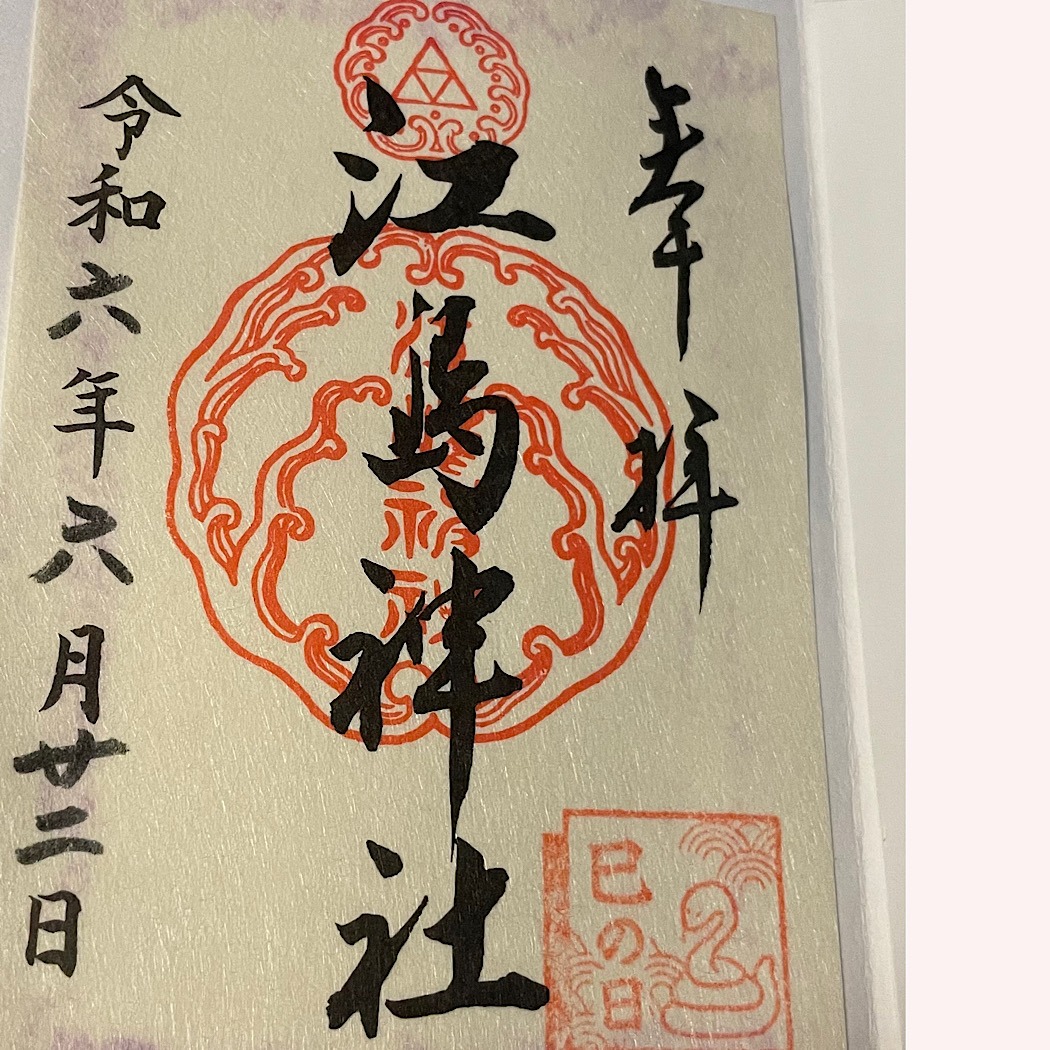 奉拝
巳の日
江島神社
令和六年六月廿二日